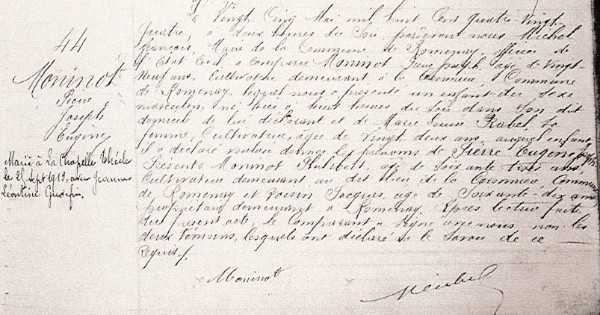 44
Moninot
Pierre
Joseph
Eugène
Marié à La Chapelle Thècle
le 21 Sept 1912, avec Jeanne
Léontine
Vingt Cinq Mai mil huit Cent quatre Vingt
quatre, à deux heures du Soir pardevant nous Michel
François, Maire de la Commune de Romenay, officier de
l'Etat Civil, a comparu Moninot Joseph, âgé de vingt
neuf ans, Cultivateur demeurant à Commune
de Romenay, lequel nous a présenté un enfant du Sexe
masculin, né, hier à heures du Soir dans Son dit
domicile de lui déclarant et de Marie Louise Sa
femme, Cultivatrice, âgée de Vingt deux ans, auquel enfant
il a déclaré vouloir donner les prénoms de Pierre Eugène
Présents Moninot Philibert, âgé de Soixante trois ans
Cultivateur demeurant au dit lieu de la Commune
de Romenay et Voisin Jacques, âgé de Soixante dix ans
propriétaire demeurant à Romenay. Après lecture faite
du présent acte, le Comparant a Signé avec nous non les
deux témoins, lesquels ont déclaré ne le Savoir de ce
Requis
Moninot
Michel